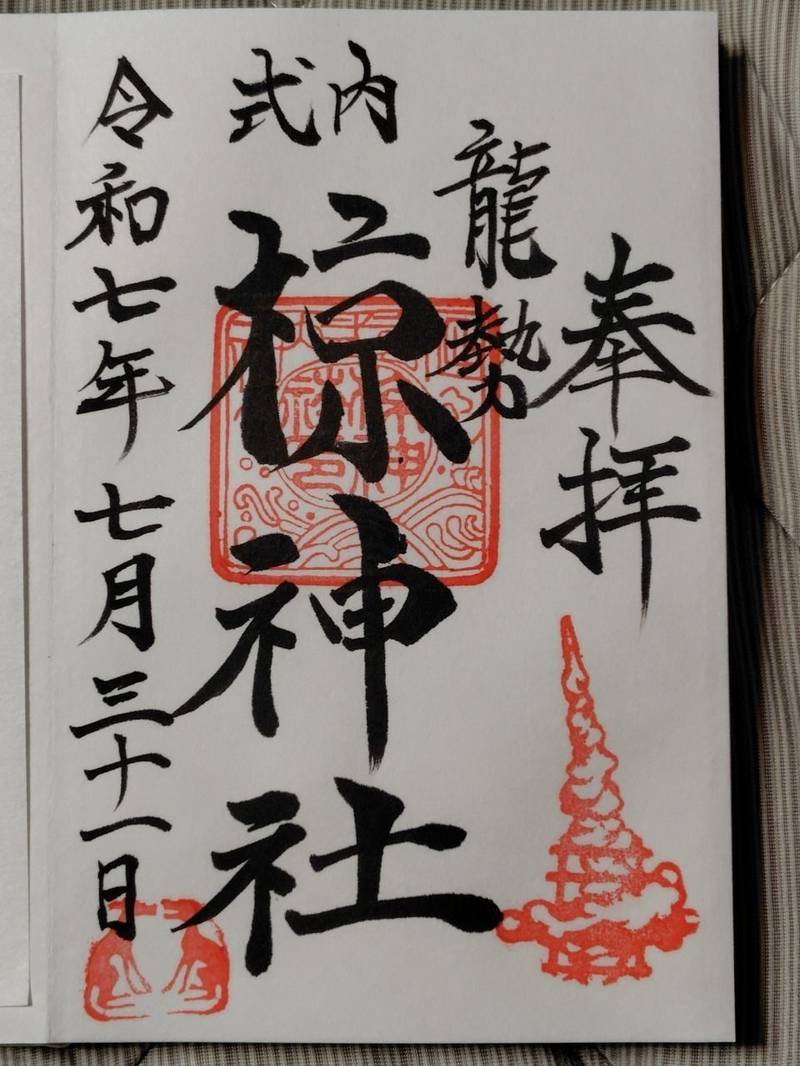 奉拝
龍勢
式内
椋神社
令和七年七月三十一日